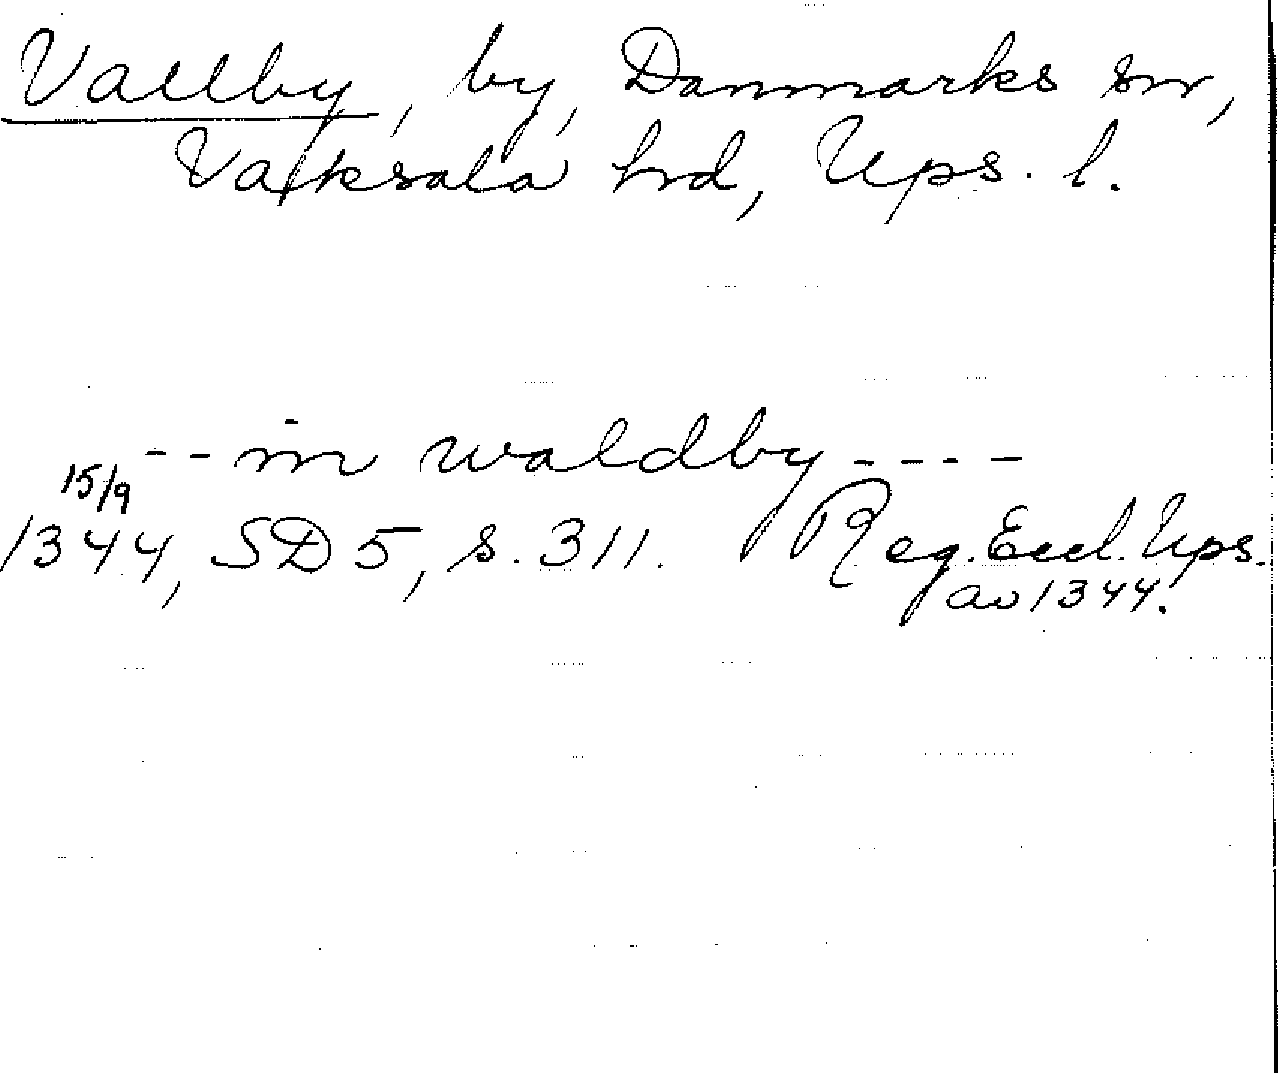 Vallby, by, Danmarks sn,
Vaksala hrd, Ups. l.
-- in waldby ----
15/9
1344, SD 5, s. 311. Reg. Eccl. Ups.
av 1344.